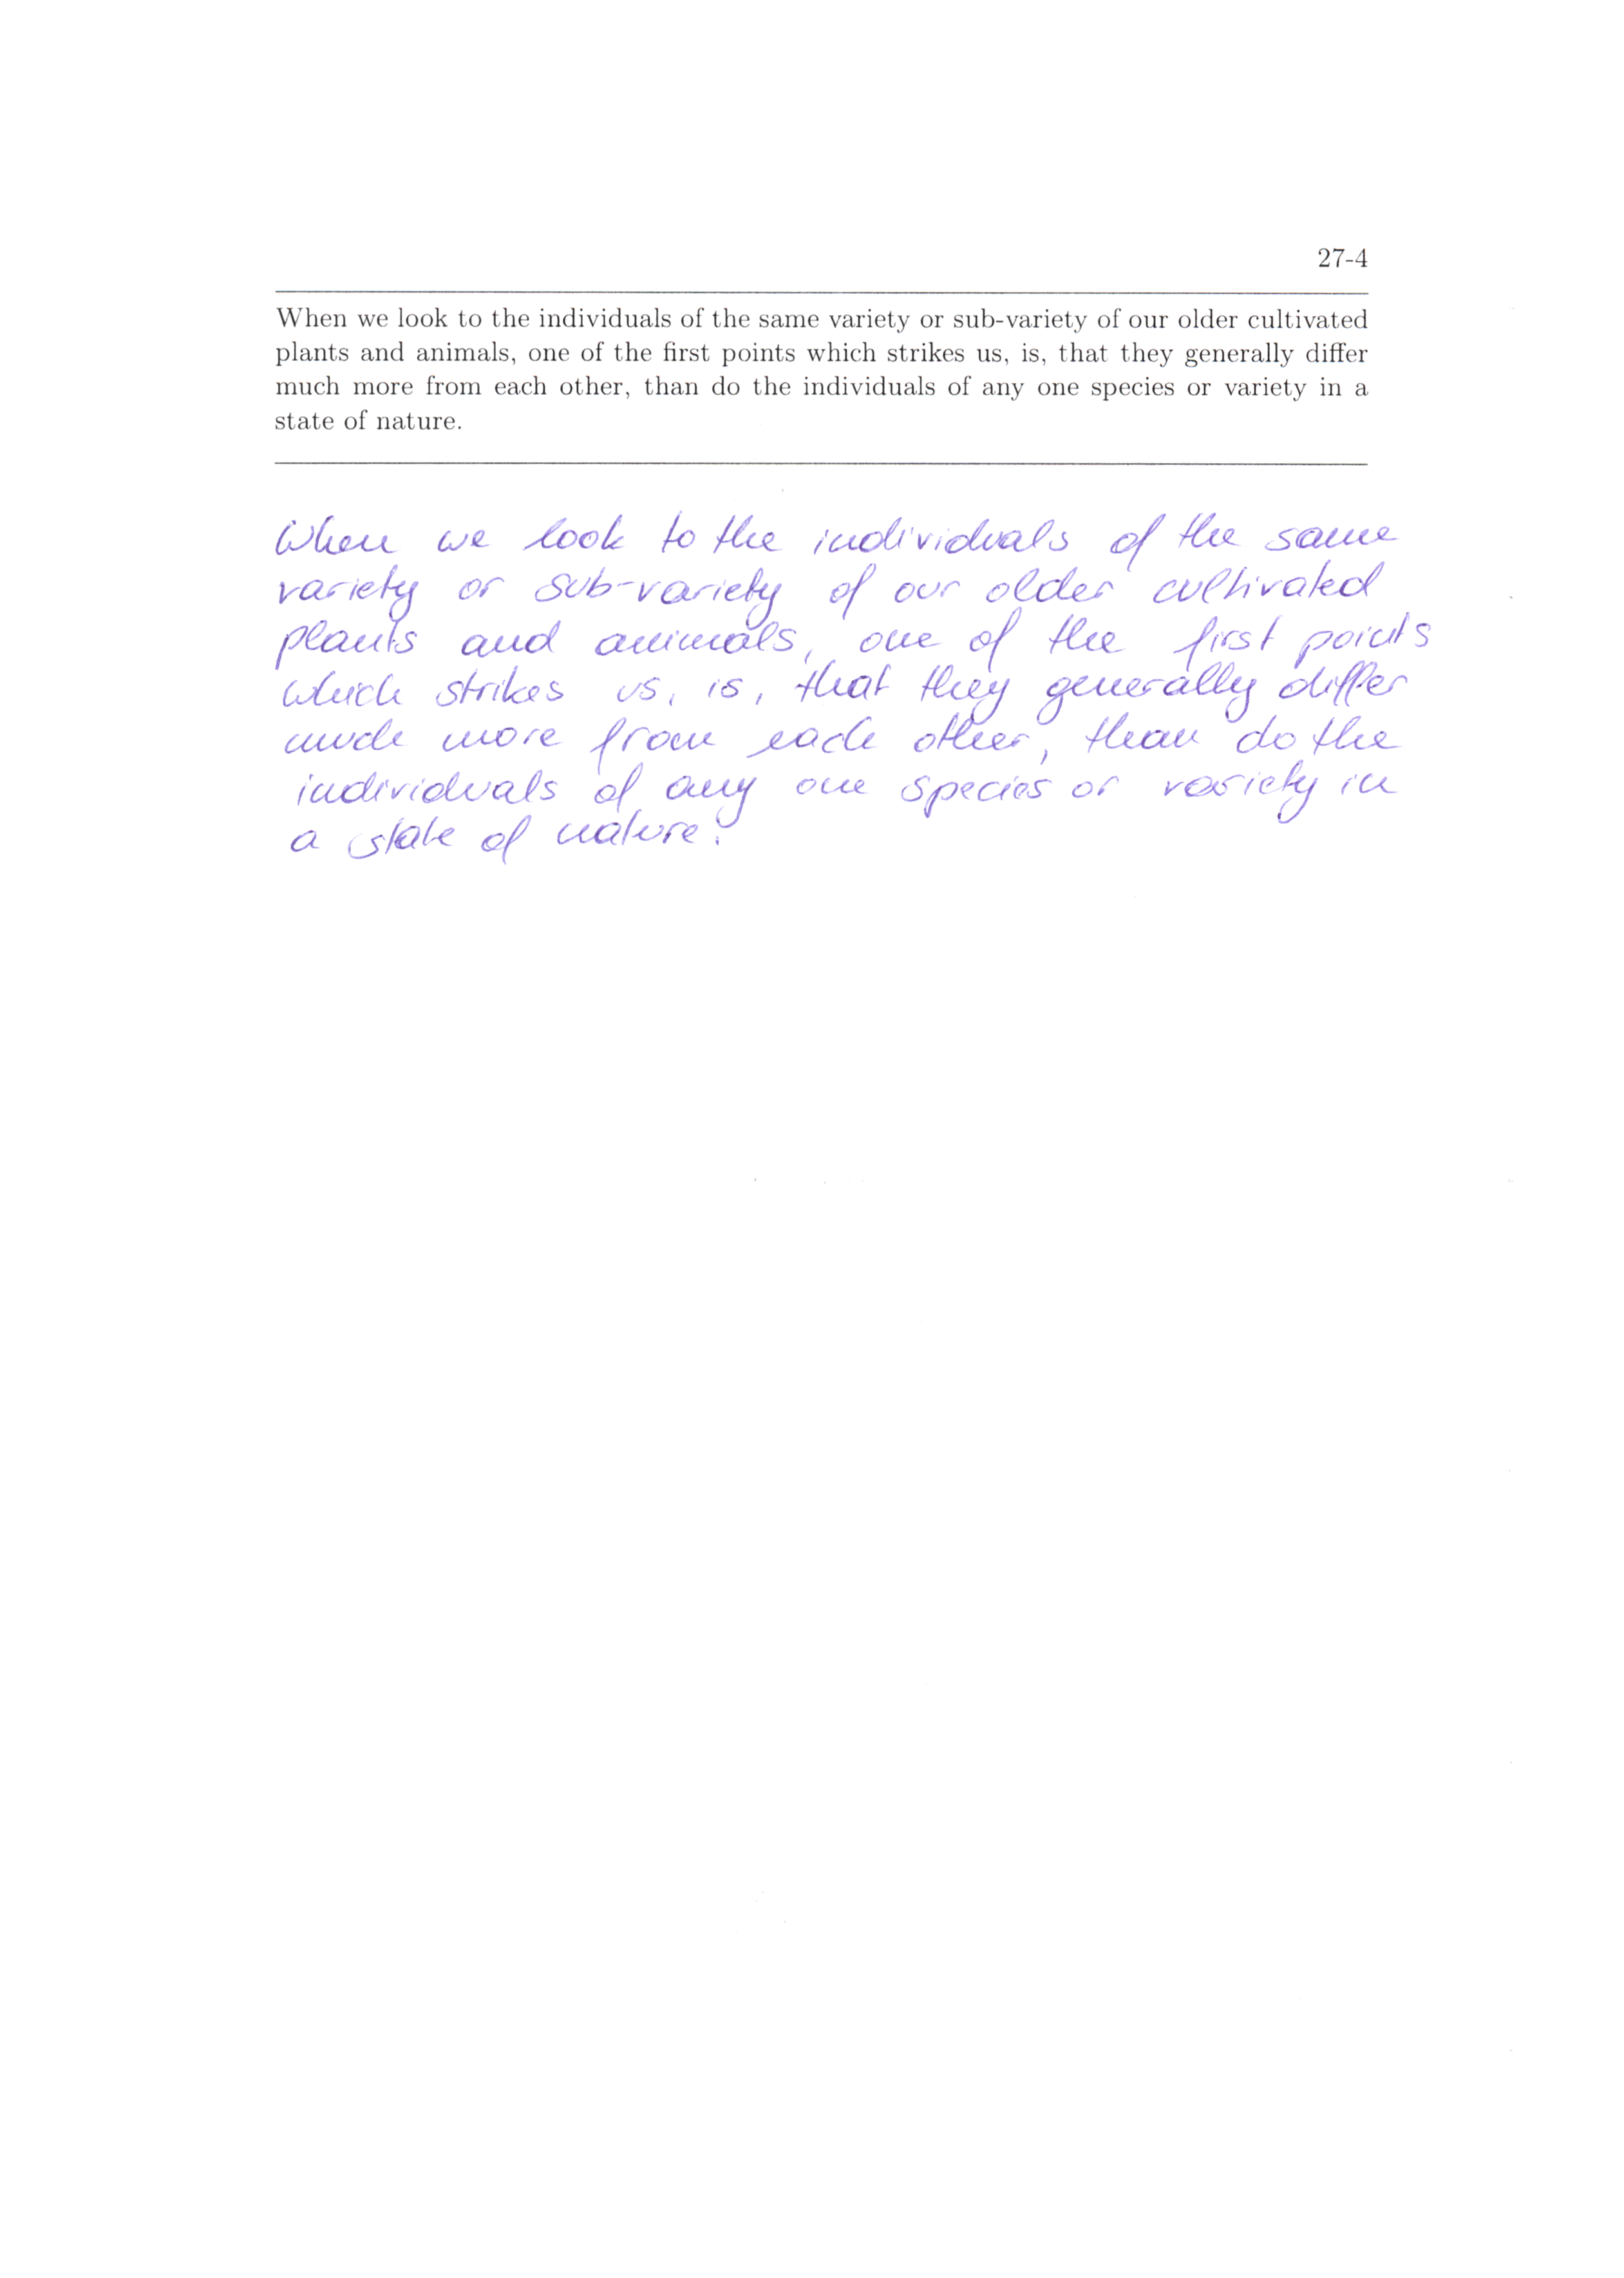 27-4
When we look to the individuals of the same variety or sub-variety of our older cultivated
plants and animals, one of the first points which strikes us, is, that they generally differ
much more from each other, than do the individuals of any one species or variety in a
state of nature.
When we look to the individuals of the same
variety or sub-variety of our older cultivated
plants and animals, one of the first points
which strikes us, is, that they generally differ
much more from each other, than do the
individuals of any one species or variety in
a state of nature.